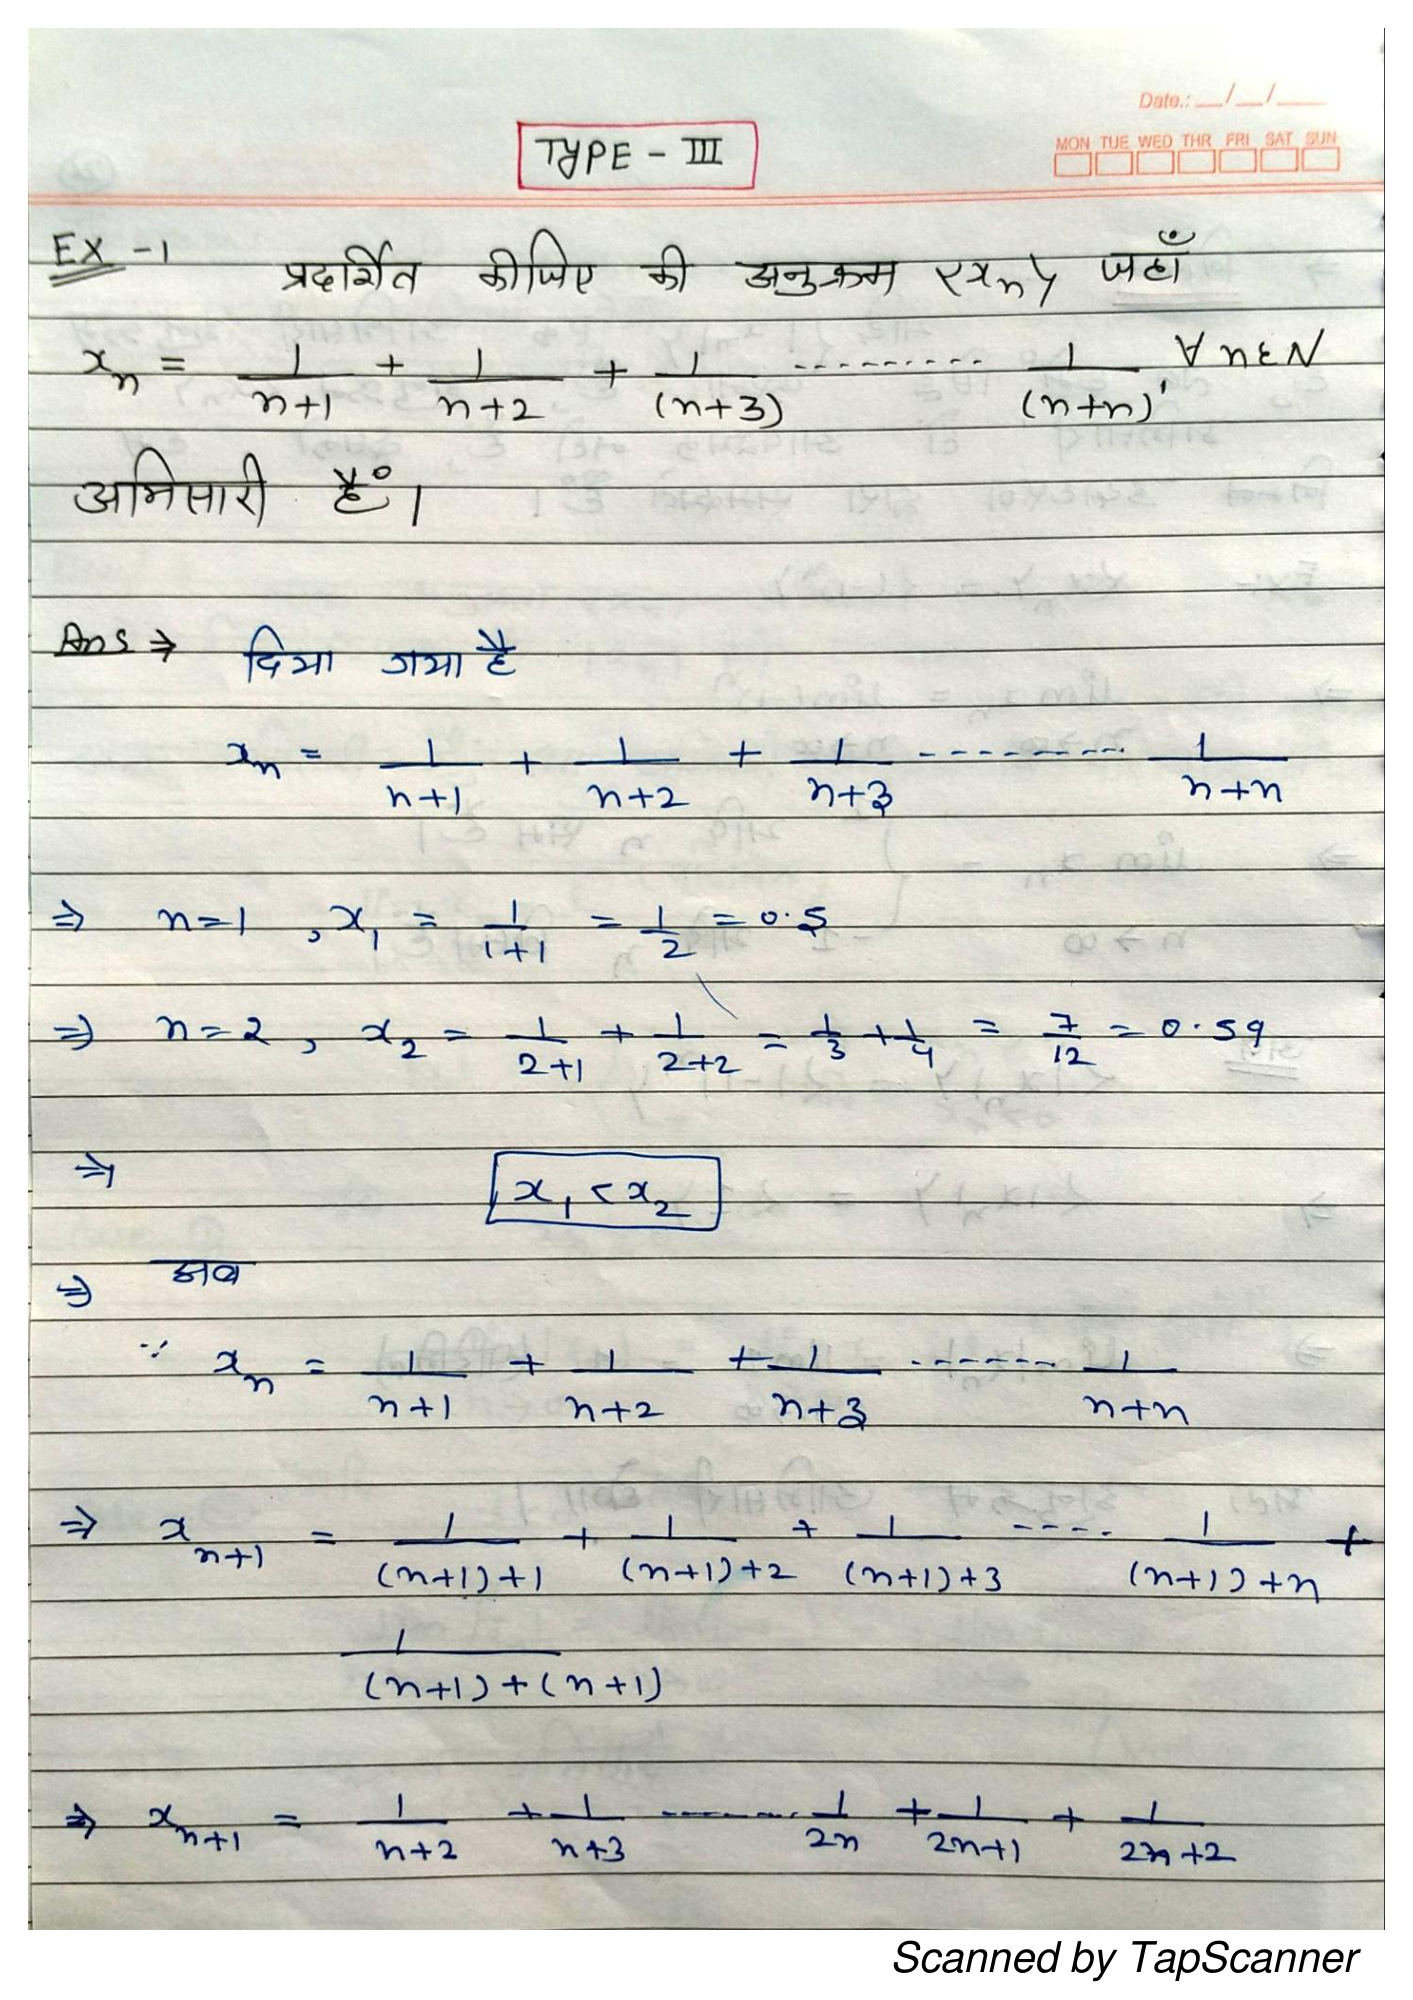 Date.: __/__/____
TYPE - III
MON TUE WED THR FRI SAT SUN
EX -1 प्रदर्शित कीजिए की अनुक्रम <xₙ> जहाँ
xₙ = 1/(n+1) + 1/(n+2) + 1/(n+3) --------- 1/(n+n), ∀ n∈N
अभिसारी हैं।
Ans ⇒ दिया गया है
xₙ = 1/(n+1) + 1/(n+2) + 1/(n+3) --------- 1/(n+n)
⇒ n=1 , x₁ = 1/(1+1) = 1/2 = 0.5
⇒ n=2 , x₂ = 1/(2+1) + 1/(2+2) = 1/3 + 1/4 = 7/12 = 0.59
⇒ x₁ < x₂
⇒ अब
∵ xₙ = 1/(n+1) + 1/(n+2) + 1/(n+3) ------- 1/(n+n)
⇒ xₙ₊₁ = 1/((n+1)+1) + 1/((n+1)+2) + 1/((n+1)+3) ---- 1/((n+1)+n) +
1/((n+1)+(n+1))
⇒ xₙ₊₁ = 1/(n+2) + 1/(n+3) ------- 1/2n + 1/(2n+1) + 1/(2n+2)
Scanned by TapScanner